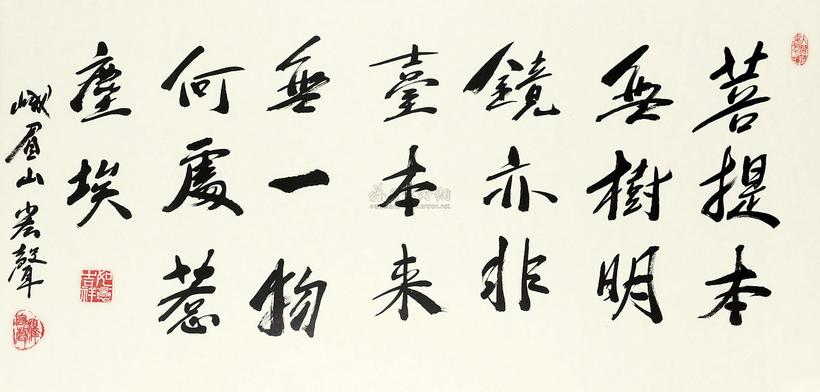 菩提本
無樹明
鏡亦非
臺本来
無一物
何處惹
塵埃
峨眉山
聲
如意吉祥